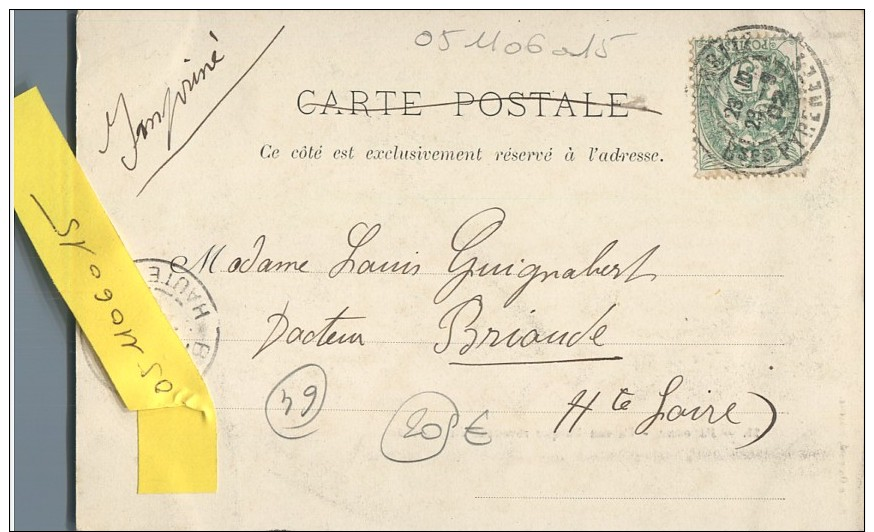 05 1106015
Imprimé
CARTE POSTALE
Ce côté est exclusivement réservé à l'adresse.
PYRENEES
Madame Louis Guignabert
Docteur Brioude
Hte Loire)
HAUTE
05 1106015
49
20F €